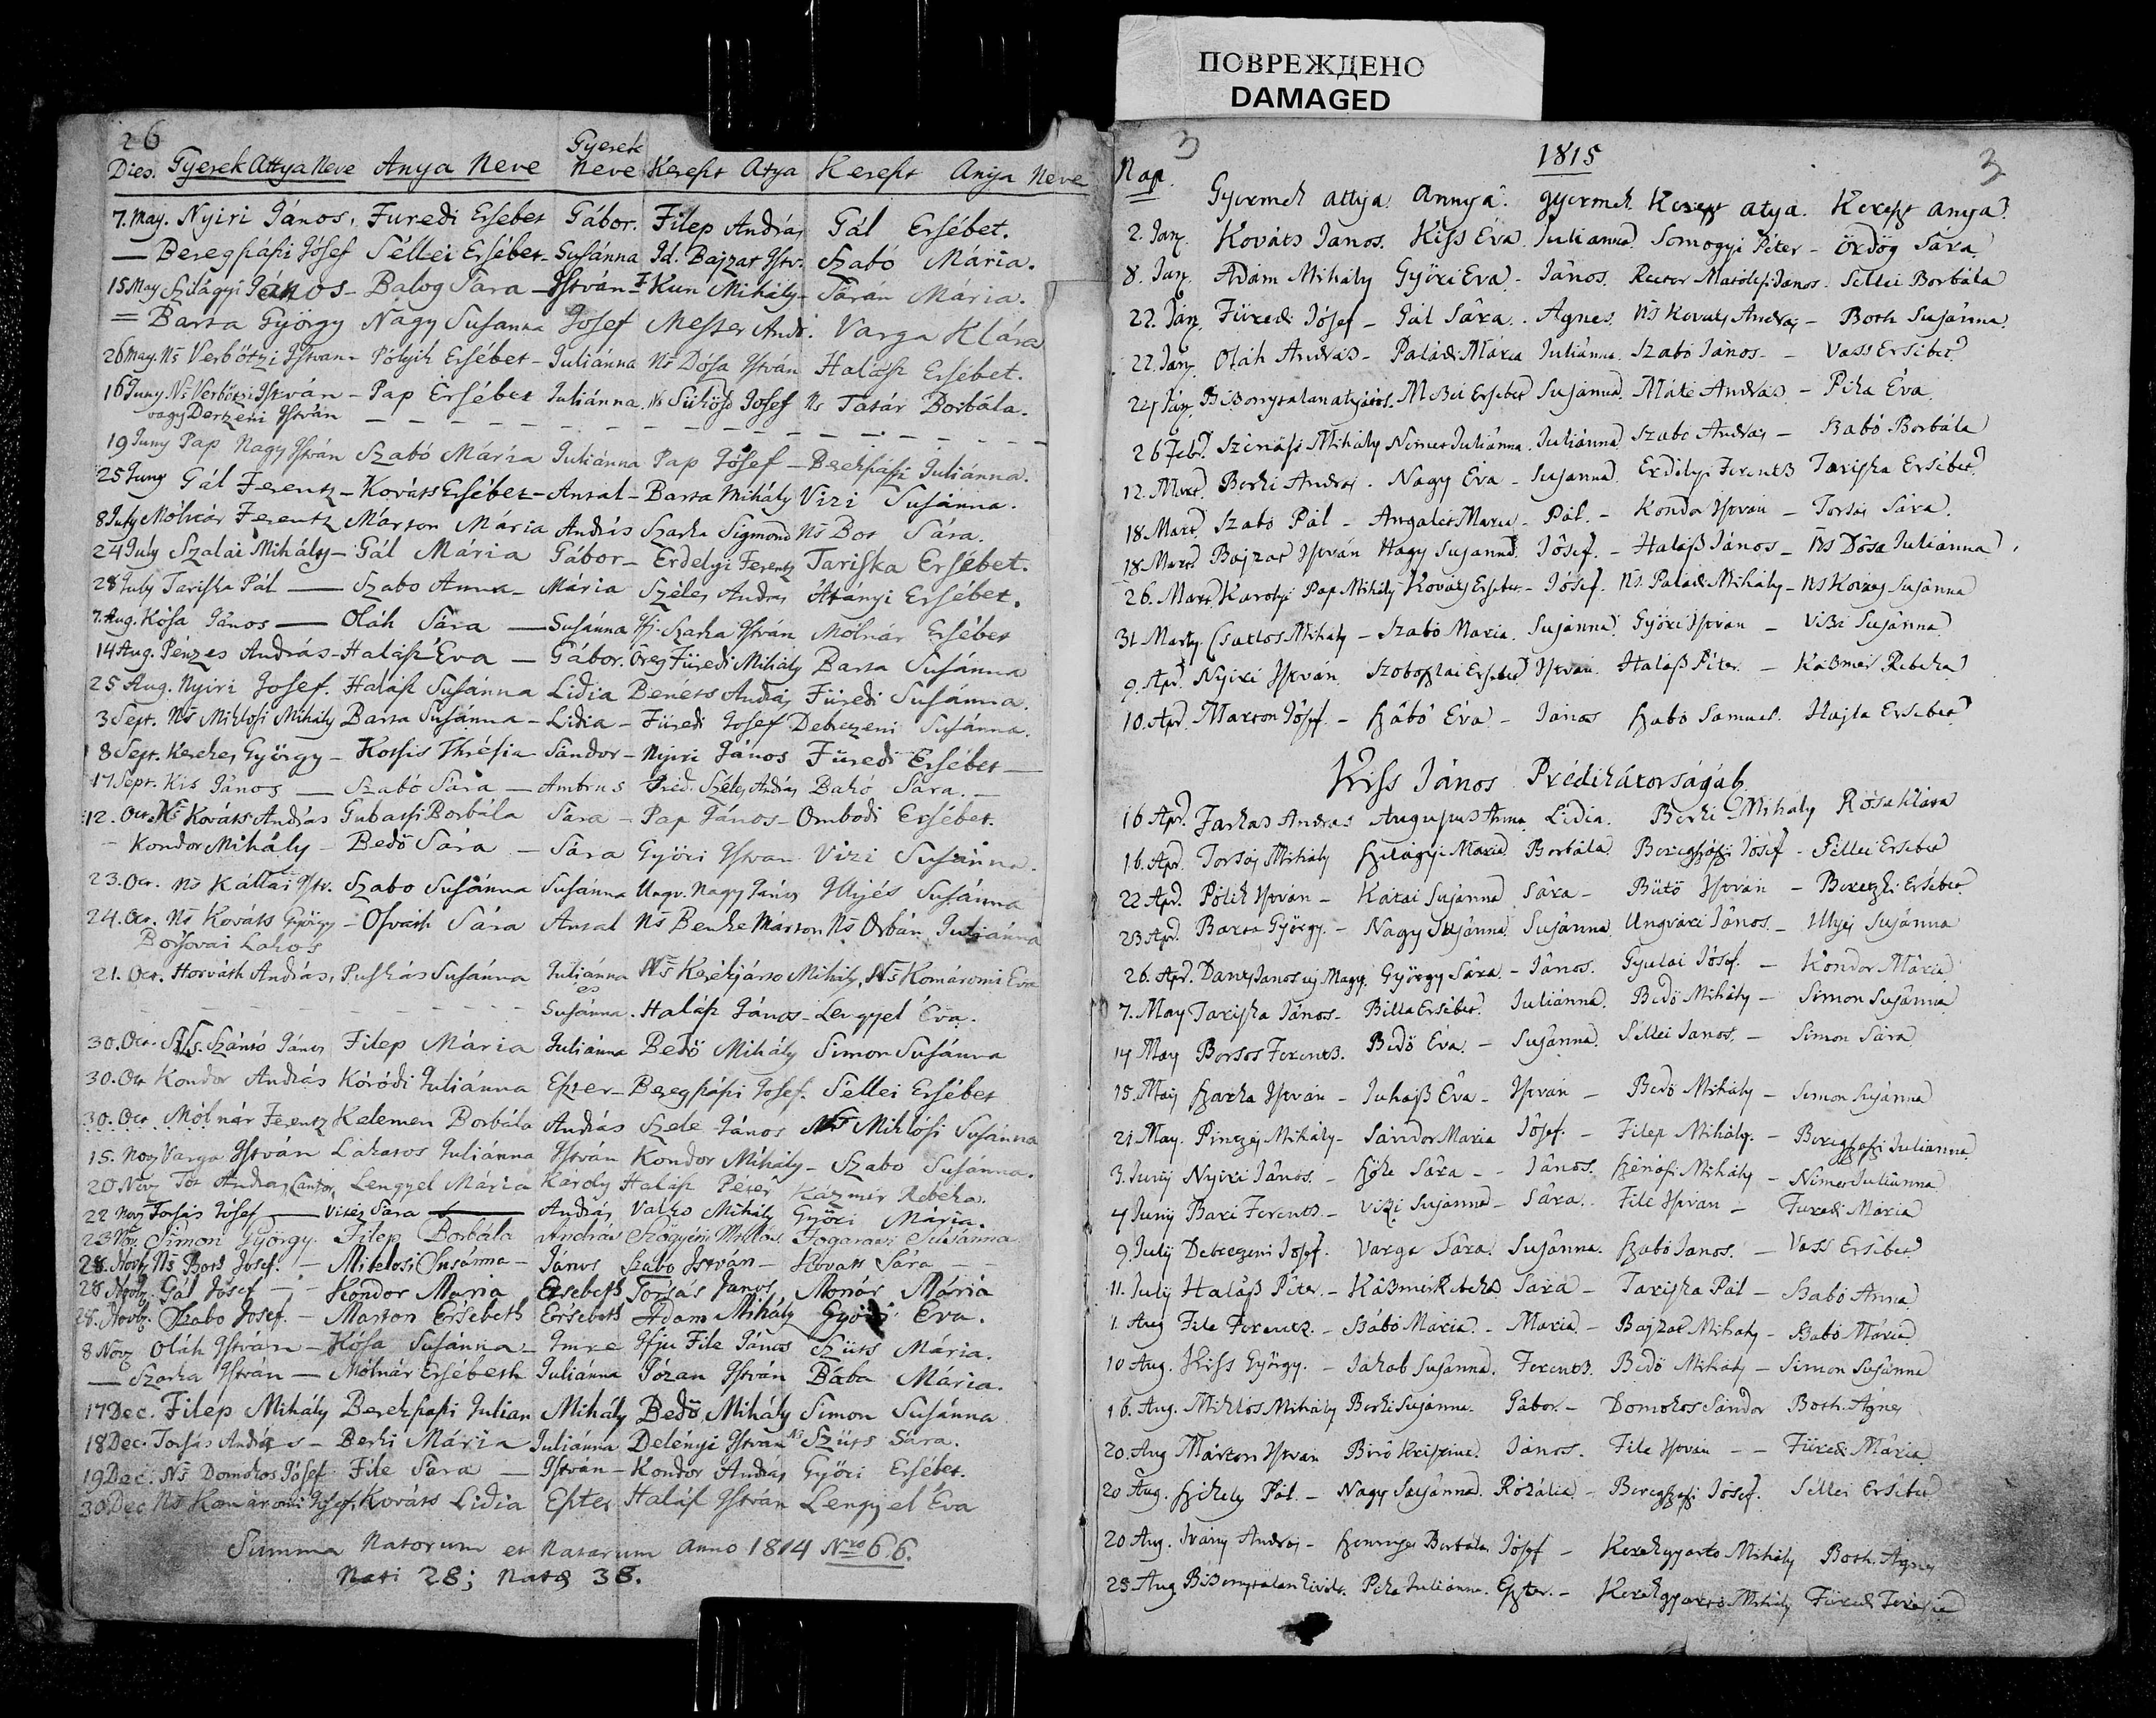 ПОВРЕЖДЕНО
DAMAGED
26
Dies. Gyerek Attya Neve Anya Neve Gyerek Neve Kereszt Atya Kereszt Anya Neve
7. May. Nyiri János, Furedi Ersébet Gábor. Filep András Gál Ersébet.
— Beregszászi Jósef Séllei Ersébet - Susánna Id. Bajzat Istv. Szabó Mária.
15 May Szilágyi János - Balog Sára - István - Kun Mihály - Mária.
= Barta György Nagy Susanna Josef Meszes Andr. Varga Klára
26 May. Ns Verbőtzi Istvan - Pólyik Ersébet - Juliánna Ns Dósa István Halász Ersébet.
16 Juny Ns Verbőtzi István - Pap Ersébet Juliánna. Ns Sülősd Josef Ns Tatár Borbála.
vagy Dertzeni István
19 Juny Pap Nagy István Szabó Mária Juliánna Pap Jósef - Berekszászi Juliánna.
25 Juny Gál Ferentz - Kováts Ersébet - Antal - Barta Mihály Vizi Susánna.
8 July Molnár Ferentz Márton Mária András Szarka Sigmond Ns Bot Sára.
24 July Szalai Mihály - Gál Mária Gábor - Erdelyi Ferentz Tariska Ersébet.
28 July Tariska Pál — Szabo Anna - Mária Széles András Átányi Ersébet.
7. Aug. Kósa János — Oláh Sára — Susánna Ifj. Szarka István Mólnár Ersébet
14 Aug. Pénzes András - Halász Éva — Gábor. Öreg Füredi Mihály Barta Susánna
25 Aug. Nyiri Josef. Halász Susánna Lidia Benéts András Füredi Susánna.
3 Sept. Ns Miklosi Mihály Barta Susánna - Lidia - Füredi Josef Debreczeni Susánna.
8 Sept. Kerekes György - Kotsis Thrésia - Sándor - Nyiri János Füredi Ersébet —
17 Sept. Kis János — Szabó Sára — Ambrus Széles András Bakó Sára. —
12. Oct. Ns Kováts András Gubatsi Borbála Sára - Pap János - Ombodi Ersébet.
- Kondor Mihály - Bedő Sára — Sára Györi Istvan Vizi Susánna.
23. Oct. Ns Kállai Istv. Szabo Susánna Susánna Ungv. Nagy János Illyés Susánna
24. Oct. Ns Kováts György - Osváth Sára Antal Ns Benke Márton Ns Orbán Juliánna
Bótsovai Lakos
21. Oct. Horváth András, Puskás Susánna Juliánna Ns Kerékjárto Mihály, Ns Komáromi Eva
es
Susánna. Halász János - Lengyel Éva.
30. Oct. Szántó János Filep Mária Juliánna Bedő Mihály Simon Susánna
30. Oct Kondor András Kóródi Juliánna Eszter - Beregszászi Josef. Séllei Ersébet
30. Oct Mólnár Ferentz Kelemen Borbála András Szele János Ns Miklósi Susánna
15. Nov Varga István Lakatos Juliánna István Kondor Mihály - Szabo Susánna.
20 Nov Tót András Cántor Lengyel Mária Karoly Halász Péter Kázmér Rebeka.
22 Nov Forsis Jósef — Vitéz Sára — András Valko Mihály Györi Mária.
23 Nov. Simon György. Filep Borbála András Szögyéni Miklós. Fogarasi Susánna.
28. Novb. Ns Both Josef. - Miklosi Susánna - János Szabo István - Kovats Sára - -
28 Novb. Gál Jósef - Kondor Maria Ersebeth Torsás Janos Monár Mária
28. Novb. Szabo Josef. - Marton Ersébeth Ersébeth Adam Mihály Györi Eva.
8 Nov Oláh István - Kósa Susánna - Imre Ifju File János Szüts Mária.
— Szarka István — Mólnár Ersébeth Juliánna Józan István Bába Mária.
17 Dec. Filep Mihály Berekszászi Julian Mihály Bedő Mihály Simon Susánna
18 Dec. Torsás András - Berki Mária Juliánna Delényi István Ns Szüts Sára.
19 Dec. Ns Domokos Jósef File Sara — István - Kondor András Györi Ersébet.
30 Dec Ns Komáromi Josef. Kováts Lidia Eszter Halász István Lengyel Éva
Summa Natorum et Natarum Anno 1814 Nro 66.
Nati 28; Natæ 38.
3 1815 3
Nap. Gyermek attya Annya. gyermek Kereszt atya. Kereszt anya.
2. Jan. Kováts Janos. Kiss Éva. Julianna Somogyi Péter - Ördög Sára
8. Jan. Adám Mihály Györi Eva - János. Rector Matólcsi János. Sellei Borbála
22. Jan. Füredi Jósef - Gál Sára. Agnes. Ns Kováts András - Both Susánna.
22. Jan. Oláh András - Paládi Mária Juliánna. Szabó János - - Vass Ersébet
24 Jan. Bizonytalan atyától. Mezei Ersébet Susánna. Máté András - Péka Éva.
26 Febr. Szénási Mihály Német Juliánna. Juliánna Szabo András - Szabó Borbála
12. Mart. Berki András. Nagy Éva - Susánna Erdélyi Ferentz Tariska Ersébet
18 Mart. Szabó Pál - Angalét Maria - Pál. - Kondor István - Torsás Sára.
18 Mart. Bajzát István Nagy Susanna. Jósef. - Halász János - Ns Dósa Juliánna
26. Mart. Karolyi Pap Mihály Kováts Ersébet - Jósef. Ns. Paládi Mihály - Ns Susánna
31 Marty. Csatlos Mihály - Szabó Maria. Susánna. Györi István - Vizi Susánna
9. Apr. Nyiri István Szoboszlai Ersébet István. Halász Péter. - Kázmér Rebeka
10. Apr. Marton Jósef. - Szabó Éva - János Szabo Samuel. Hajla Ersebet
Kiss János Prédikátorságáb.
16 Apr. Farkas Andras Augustus Anna Lidia. Berki Mihály Rósa Klára
16. Apr. Torsás Mihály Szilágyi Maria Borbála Beregszászi Jósef - Séllei Ersébet
22 Apr. Pólik István - Katai Susánna Sára - Bütö István - Beretzki Ersébet
23 Apr. Barta György. - Nagy Susánna Susánna Ungvári János - Illyés Susánna
26. Apr. György Sára. - János. Gyulai Jósef. - Kondor Mária
7. May Tariska János. - Billa Ersébet. Juliánna. Bedő Mihály - Simon Susánna
14 May Borsos Ferentz. Bedő Éva. - Susánna. Séllei Janos. - Simon Sára
15. May Szarka István - Juhász Éva - István - Bedő Mihály - Simon Susánna
21. May. Péntzes Mihály - Sándor Maria Jósef. - Filep Mihály. - Beregszászi Julianna
3. Juny Nyiri János. - Szőke Sára - - János. Szénási Mihály - Német Juliánna
4 Juny Bari Ferentz - Vizi Susánna - Sára. File István - Furedi Mária
9. July Debretzeni Josef. Varga Sára. Susánna. Szabó Janos. - Vass Ersébet
11. July Halász Péter. - Kázmér Rebeka Sára - Tariska Pál - Szabó Anna
1. Aug File Ferentz. - Szabó Mária. - Maria - Bajzát Mihaly - Szabó Mária
10 Aug. Kiss György. - Jakab Susánna. Ferentz. Bedő Mihály - Simon Susánna
16. Aug. Miklós Mihály Berki Susánna. Gábor. - Domokos Sándor Both. Ágnes
20. Aug Márton István Biró Krisztina. János. File István - - Füredi Mária
20 Aug. Székely Pál. - Nagy Susánna. Rozália - Beregszászi Jósef. Séllei Ersébet
20 Aug. Ivány András - Borbála Jósef - Kerekgyarto Mihály Both. Ágnes
25 Aug Bizonytalan Péka Juliánna. Eszter. - Kerekgyarto Mihály Füredi Terésia